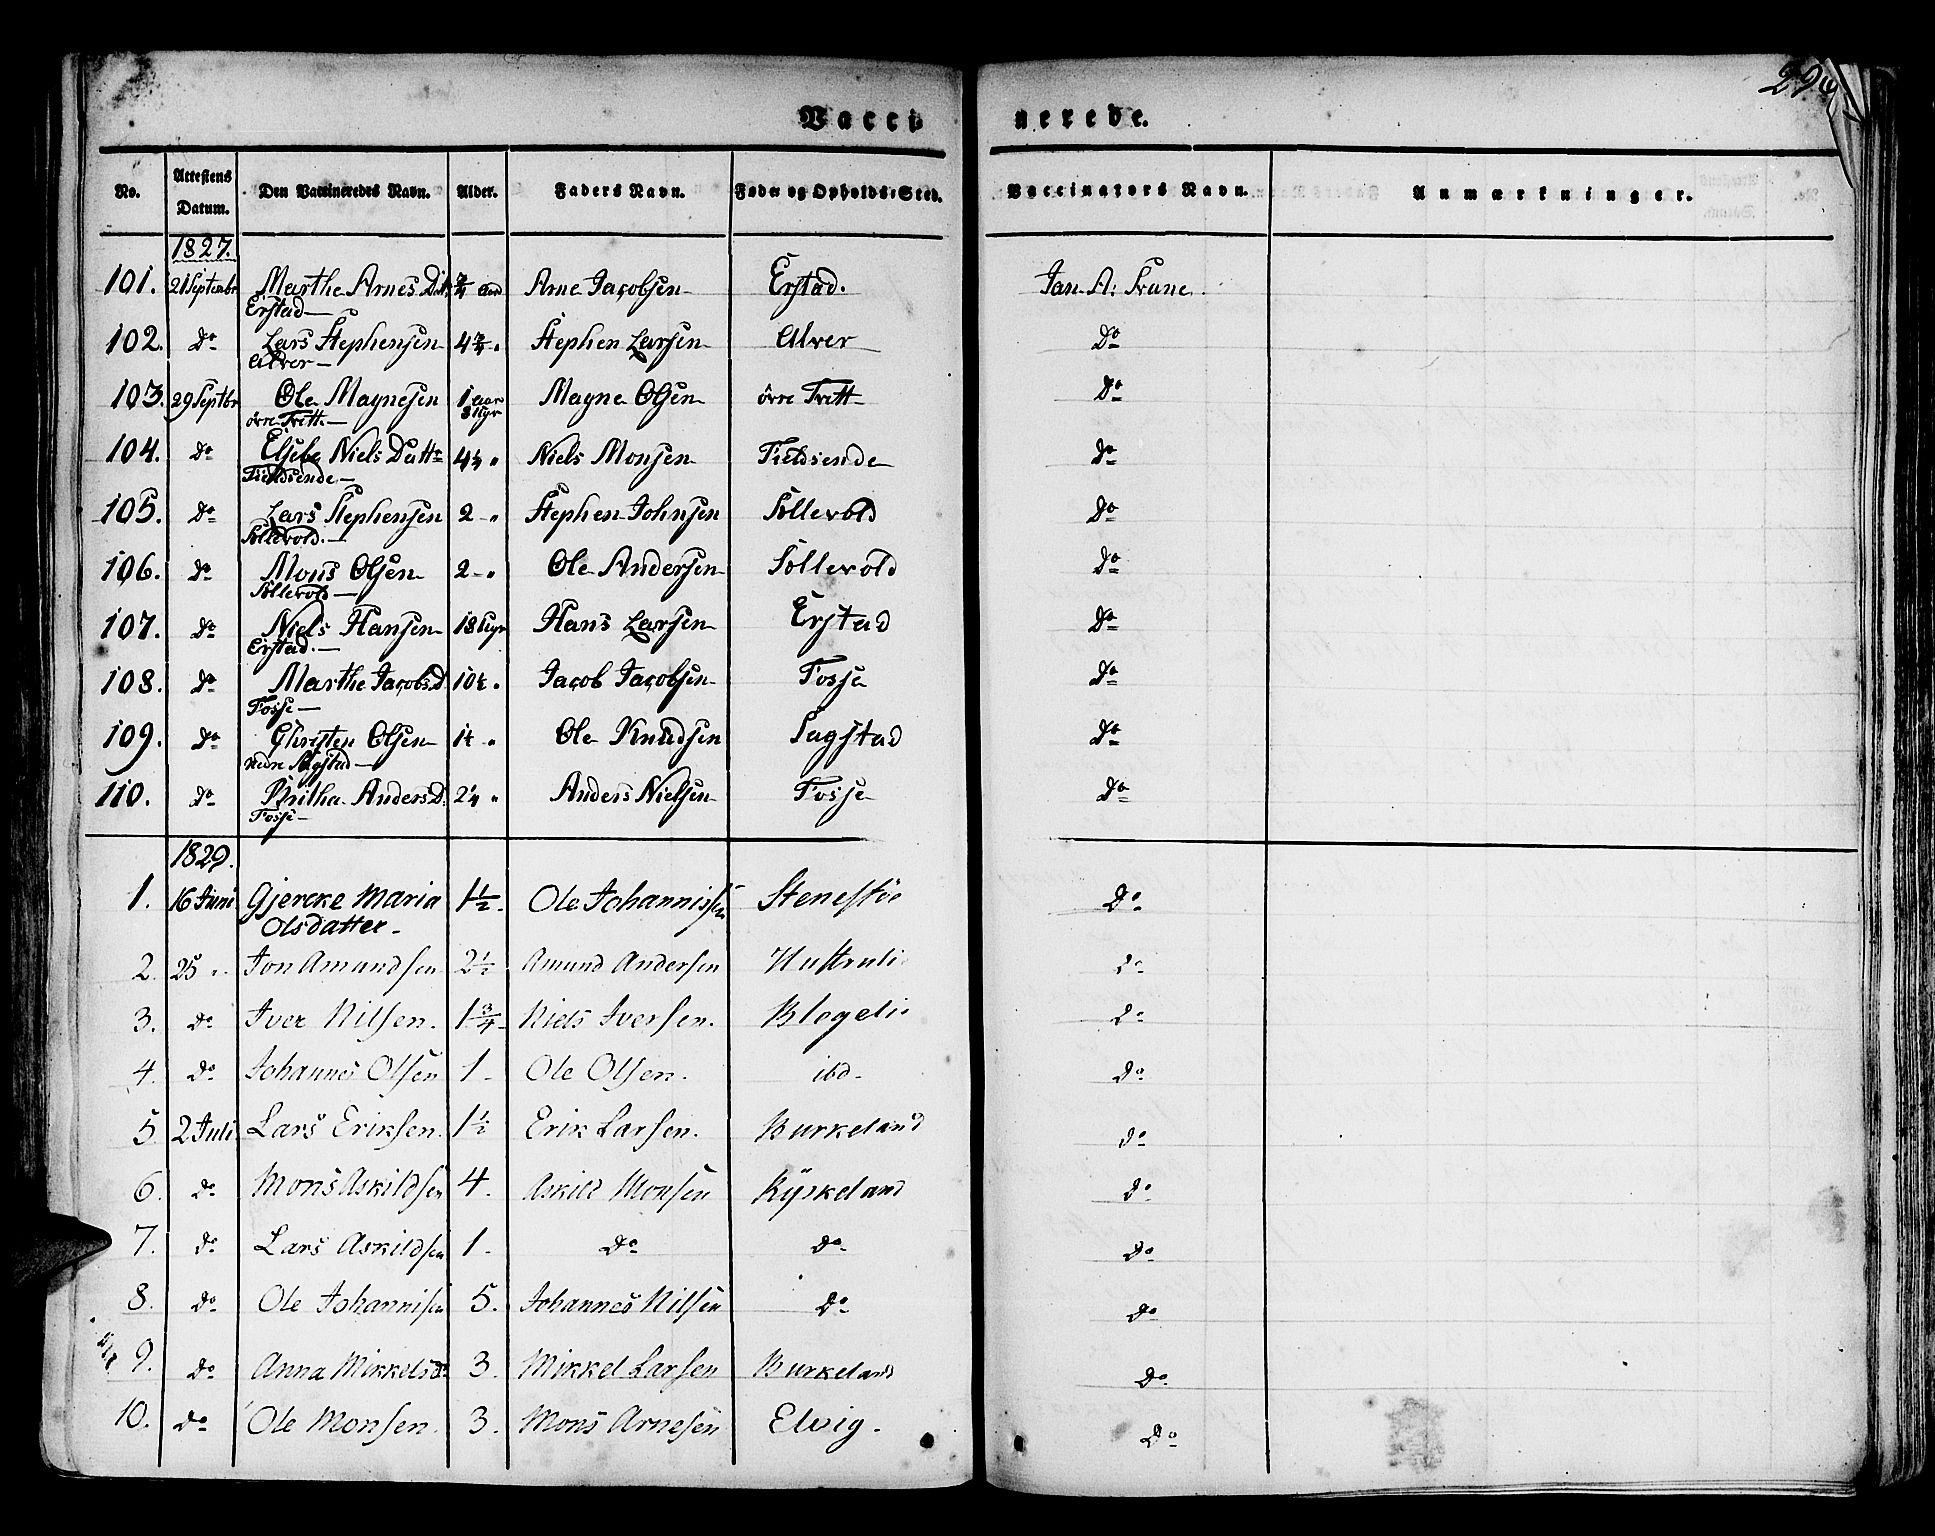 Vaccinerede.
No. Attestens Datum. Den Vaccineredes Navn. Alder. Faders Navn. Føde og Opholds-Sted. Vaccinators Navn. Anmærkninger.
1827.
101. 21 Septembr Marthe Arnes Dat. 3/4 aar Arne Jacobsen Erstad. Jan A: Trane
Erstad
102. Do Lars Stephensen 4 3/4 " Stephen Larsen Alver Do
Alver
103. 29 Septbr Ole Magnesen 1 aar Magne Olsen örre Tvett Do
örre Tvett
104. Do Elsebe Niels Dattr 4 1/2 " Niels Monsen Fieldsende Do
Fieldsende
105. Do Lars Stephensen 2 " Stephen Johnsen Sollevold Do
Sollevold.
106. Do Mons Olsen 2 " Ole Andersen Sollevold Do
Sollevold
107. Do Niels Hansen 18 Ugr Hans Larsen Erstad Do
Erstad.
108. Do Marthe Jacobs D. 10 1/2 " Jacob Jacobsen Fosse Do
Fosse
109. Do Christen Olsen 1 1/2 " Ole Knudsen Sagstad Do
nedre Sagstad
110. Do Britha Anders D. 2 1/4 " Anders Nielsen Fosse Do
Fosse
1829.
1. 16 Juni Gjercke Maria 1 1/2 Ole Johannissen Stenestöe Do
Olsdatter
2. 25 " Jon Amundsen 2 1/2 Amund Andersen Do
3. Do Iver Nilsen. 1 3/4 Niels Iversen. Do
4. Do Johannes Olsen 1 Ole Olsen. ibd. Do
5. 2 Juli Lars Eriksen. 1 1/2 Erik Larsen. Burkeland Do
6. Do Mons Askildsen 4. Askild Monsen Ryskeland Do
7. Do Lars Askildsen 1 Do Do Do
8. Do Ole Johannisen 5. Johannes Nilsen Do Do
9. Do Anna Mikkelsd. 3. Mikkel Larsen Burkeland Do
10. Do Ole Monsen. 3. Mons Arnesen Elvig. Do